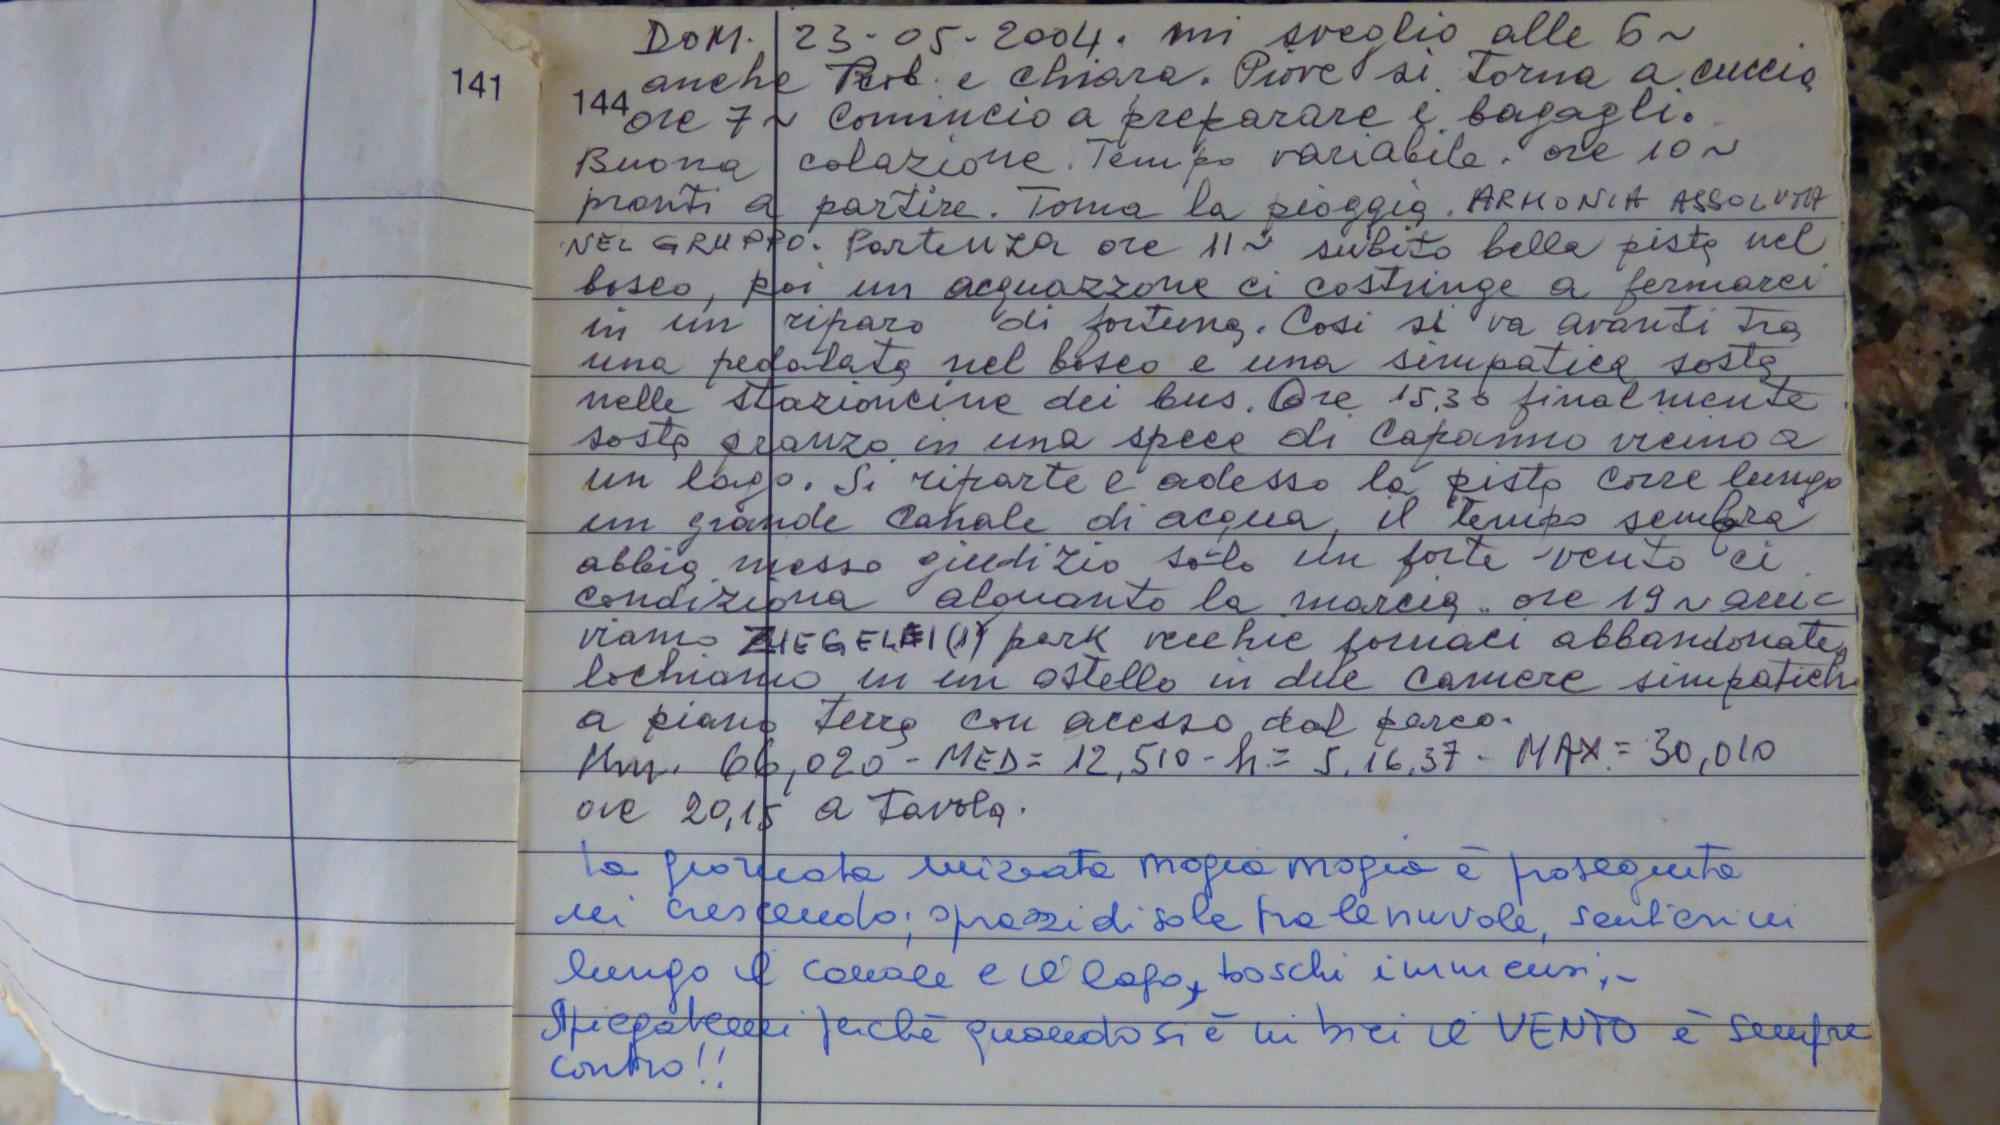 141
144
DOM. 23-05-2004. mi sveglio alle 6~
anche e chiara. Piove si torna a cuccia
ore 7~ Comincio a preparare i bagagli.
Buona colazione. Tempo variabile. ore 10~
pronti a partire. Torna la pioggia. ARMONIA ASSOLUTA
NEL GRUPPO. Partenza ore 11~ subito bella pista nel
bosco, poi un acquazzone ci costringe a fermarci
in un riparo di fortuna. Cosi si va avanti tra
una pedalata nel bosco e una simpatica sosta
nelle stazioncine dei bus. Ore 15,30 finalmente
sosta pranzo in una spece di Capanno vicino a
un lago. Si riparte e adesso la pista corre lungo
un grande Canale di acqua, il tempo sembra
abbia messo giudizio solo un forte vento ci
condiziona alquanto la marcia. ore 19~ arri=
viamo ZIEGELEI(1) park vecchie fornaci abbandonate,
lochiamo in un ostello in due camere simpatich
a piano terra con acesso dal parco.
Km. 66,020 - MED= 12,510 - h= 5.16.37 - MAX.= 30,010
ore 20,15 a tavola.
La giornata iniziata mogia mogia è proseguita
in crescendo; sprazzi di sole fra le nuvole, sentieri
lungo il canale e il lago, boschi immensi;-
Spiegatemi perchè quando si è in bici il VENTO è sempre
contro!!